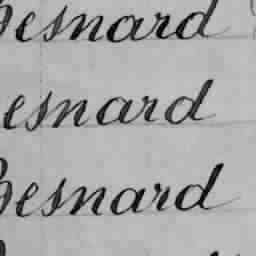 Besnard
esnard
Besnard